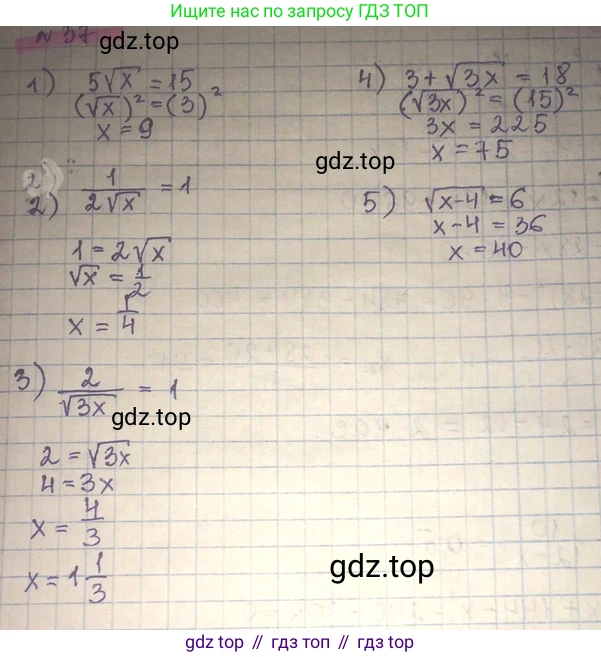 Ищите нас по запросу ГДЗ ТОП
№ 37
gdz.top
1) 5√x = 15
(√x)² = (3)²
x = 9
2)
2) 1/(2√x) = 1
1 = 2√x
√x = 1/2
x = 1/4
3) 2/√3x = 1
gdz.top
2 = √3x
4 = 3x
x = 4/3
x = 1 1/3
4) 3 + √3x = 18
(√3x)² = (15)²
3x = 225
gdz.top
x = 75
5) √x-4 = 6
x - 4 = 36
x = 40
gdz.top
gdz.top // гдз топ // gdz top